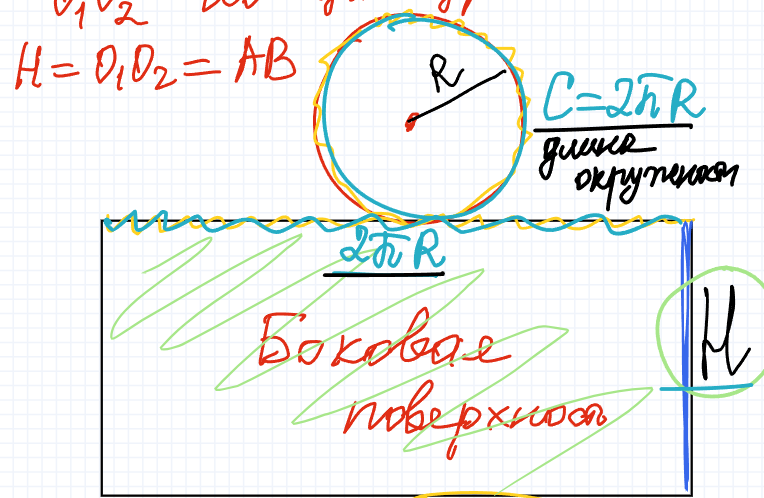 H = O₁O₂ = AB
R
C = 2πR
длина
окружност
2πR
Боковая
поверхност
H